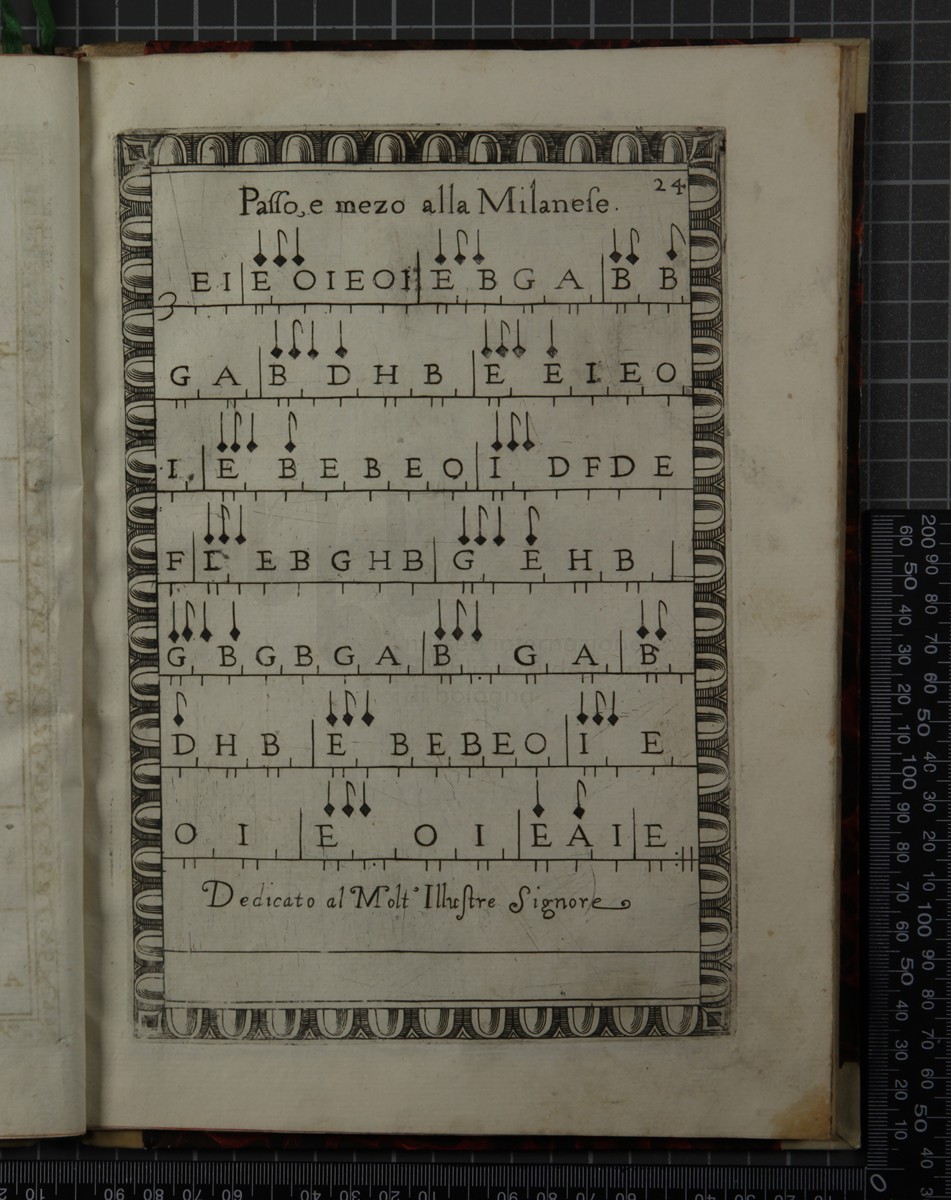 24
Paſſo, e mezo alla Milaneſe.
E I | E O I E O I | E B G A | B B
3
G A | B D H B | E E I E O
I | E B E B E O | I D F D E
F | D E B G H B | G E H B |
G B G B G A | B G A | B
D H B | E B E B E O | I E
O I | E O I | E A I | E
Dedicato al Molt' Illuſtre Signore